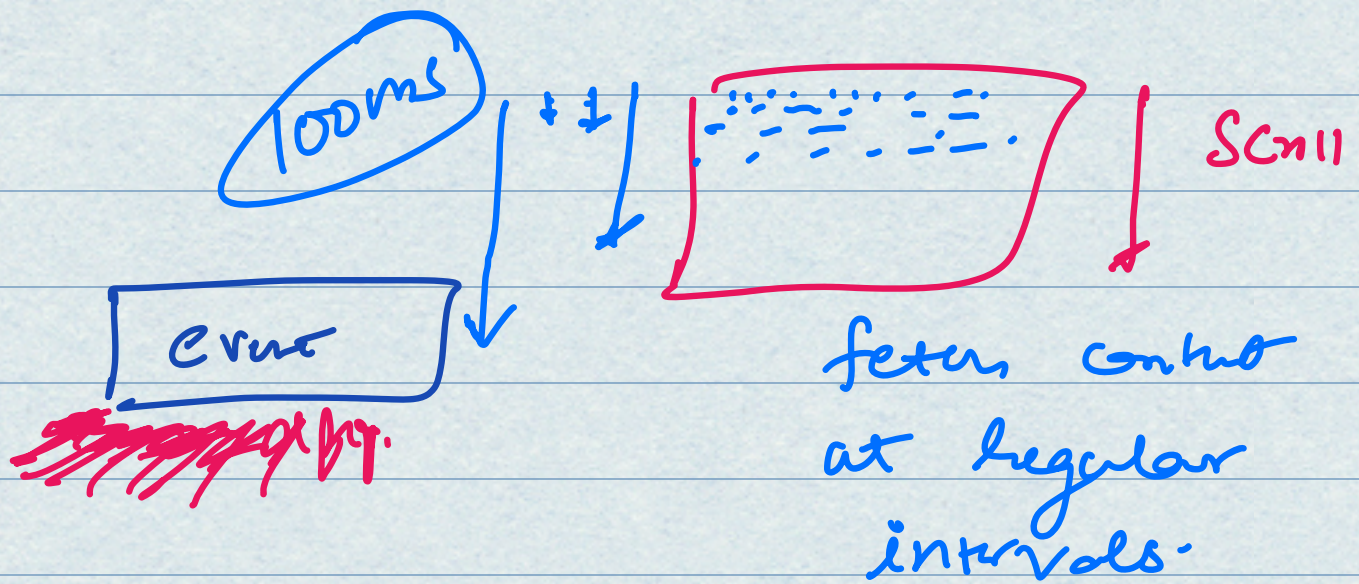 100ms
Scroll
event
fetch content
at regular
intervals.